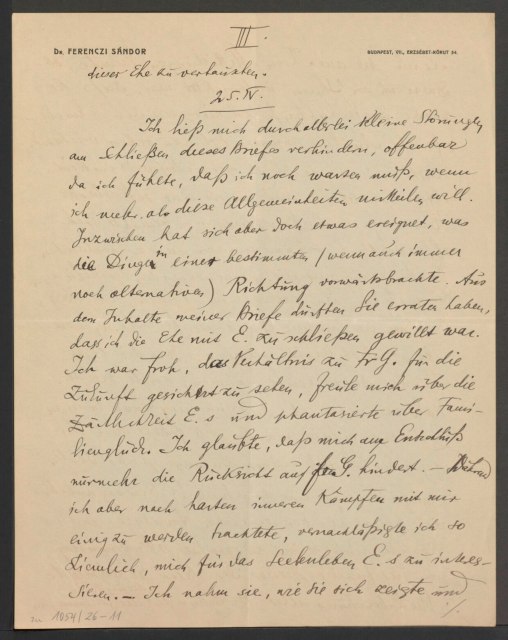 III.
DR. FERENCZI SÁNDOR
BUDAPEST, VII., ERZSÉBET-KÖRUT 54.
dieser Ehe zu vertauschen.
25. IV.
Ich ließ mich durch allerlei kleine Störungen
am Schließen dieses Briefes verhindern, offenbar
da ich fühlte, daß ich noch warten muß, wenn
ich mehr als diese Allgemeinheiten mitteilen will.
Inzwischen hat sich aber doch etwas ereignet, was
die Dinge in einer bestimmten (wenn auch immer
noch alternativen) Richtung vorwärtsbrachte. Aus
dem Inhalte meiner Briefe durften Sie erraten haben,
dass ich die Ehe mit E. zu schließen gewillt war.
Ich war froh, das Verhältnis zu Fr G. für die
Zukunft gesichert zu sehen, freute mich über die
Zärtlichkeit E. s und phantasierte über Fami-
lienglück. Ich glaubte, daß mich am Entschluß
nurmehr die Rücksicht auf G. hindert. – Während
ich aber nach harten inneren Kämpfen mit mir
einig zu werden trachtete, vernachläßigte ich so
ziemlich, mich für das Seelenleben E. s zu interes-
sieren. – Ich nahm sie, wie sie sich zeigte und
./.
1054/26-11